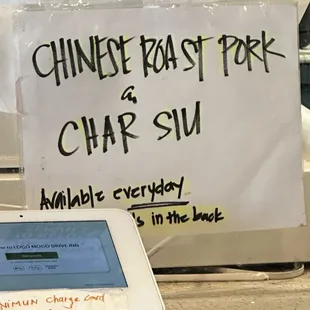 CHINESE ROAST PORK
&
CHAR SIU
Available everyday
in the back
to LOCO MOCO DRIVE INN
NIMUN Charge Card